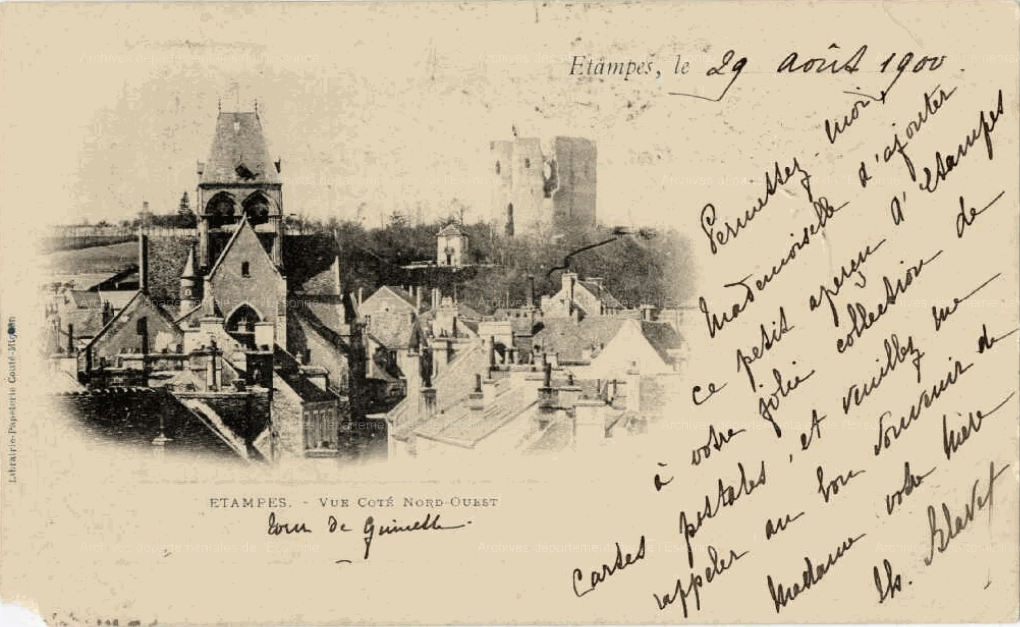 Etampes, le 29 août 1900.
Permettez-moi,
Mademoiselle d'ajouter
ce petit aperçu d'Etampes
à votre jolie collection de
Cartes postales, et veuillez me
rappeler au bon souvenir de
Madame votre Mère
Th. Blavet
ETAMPES. - VUE COTÉ NORD-OUEST
tour de Guinette.
Librairie-Papeterie Couté-Mignon
Archives départementales de l'Essonne